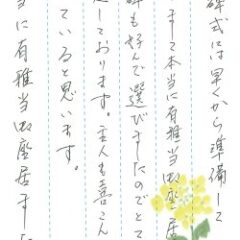 式には早くから準備して
まして本当に有雅当御座居
も好んで選びましたのでとて
しております。主人も喜こん
ていると思います。
に有雅当御座居ました